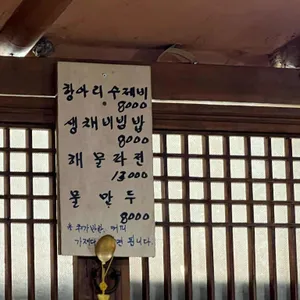 항아리 수제비
8000
생채비빔밥
8000
해물라면
13000
물만두
8000
※ 추가반찬, 머리
됩니다.